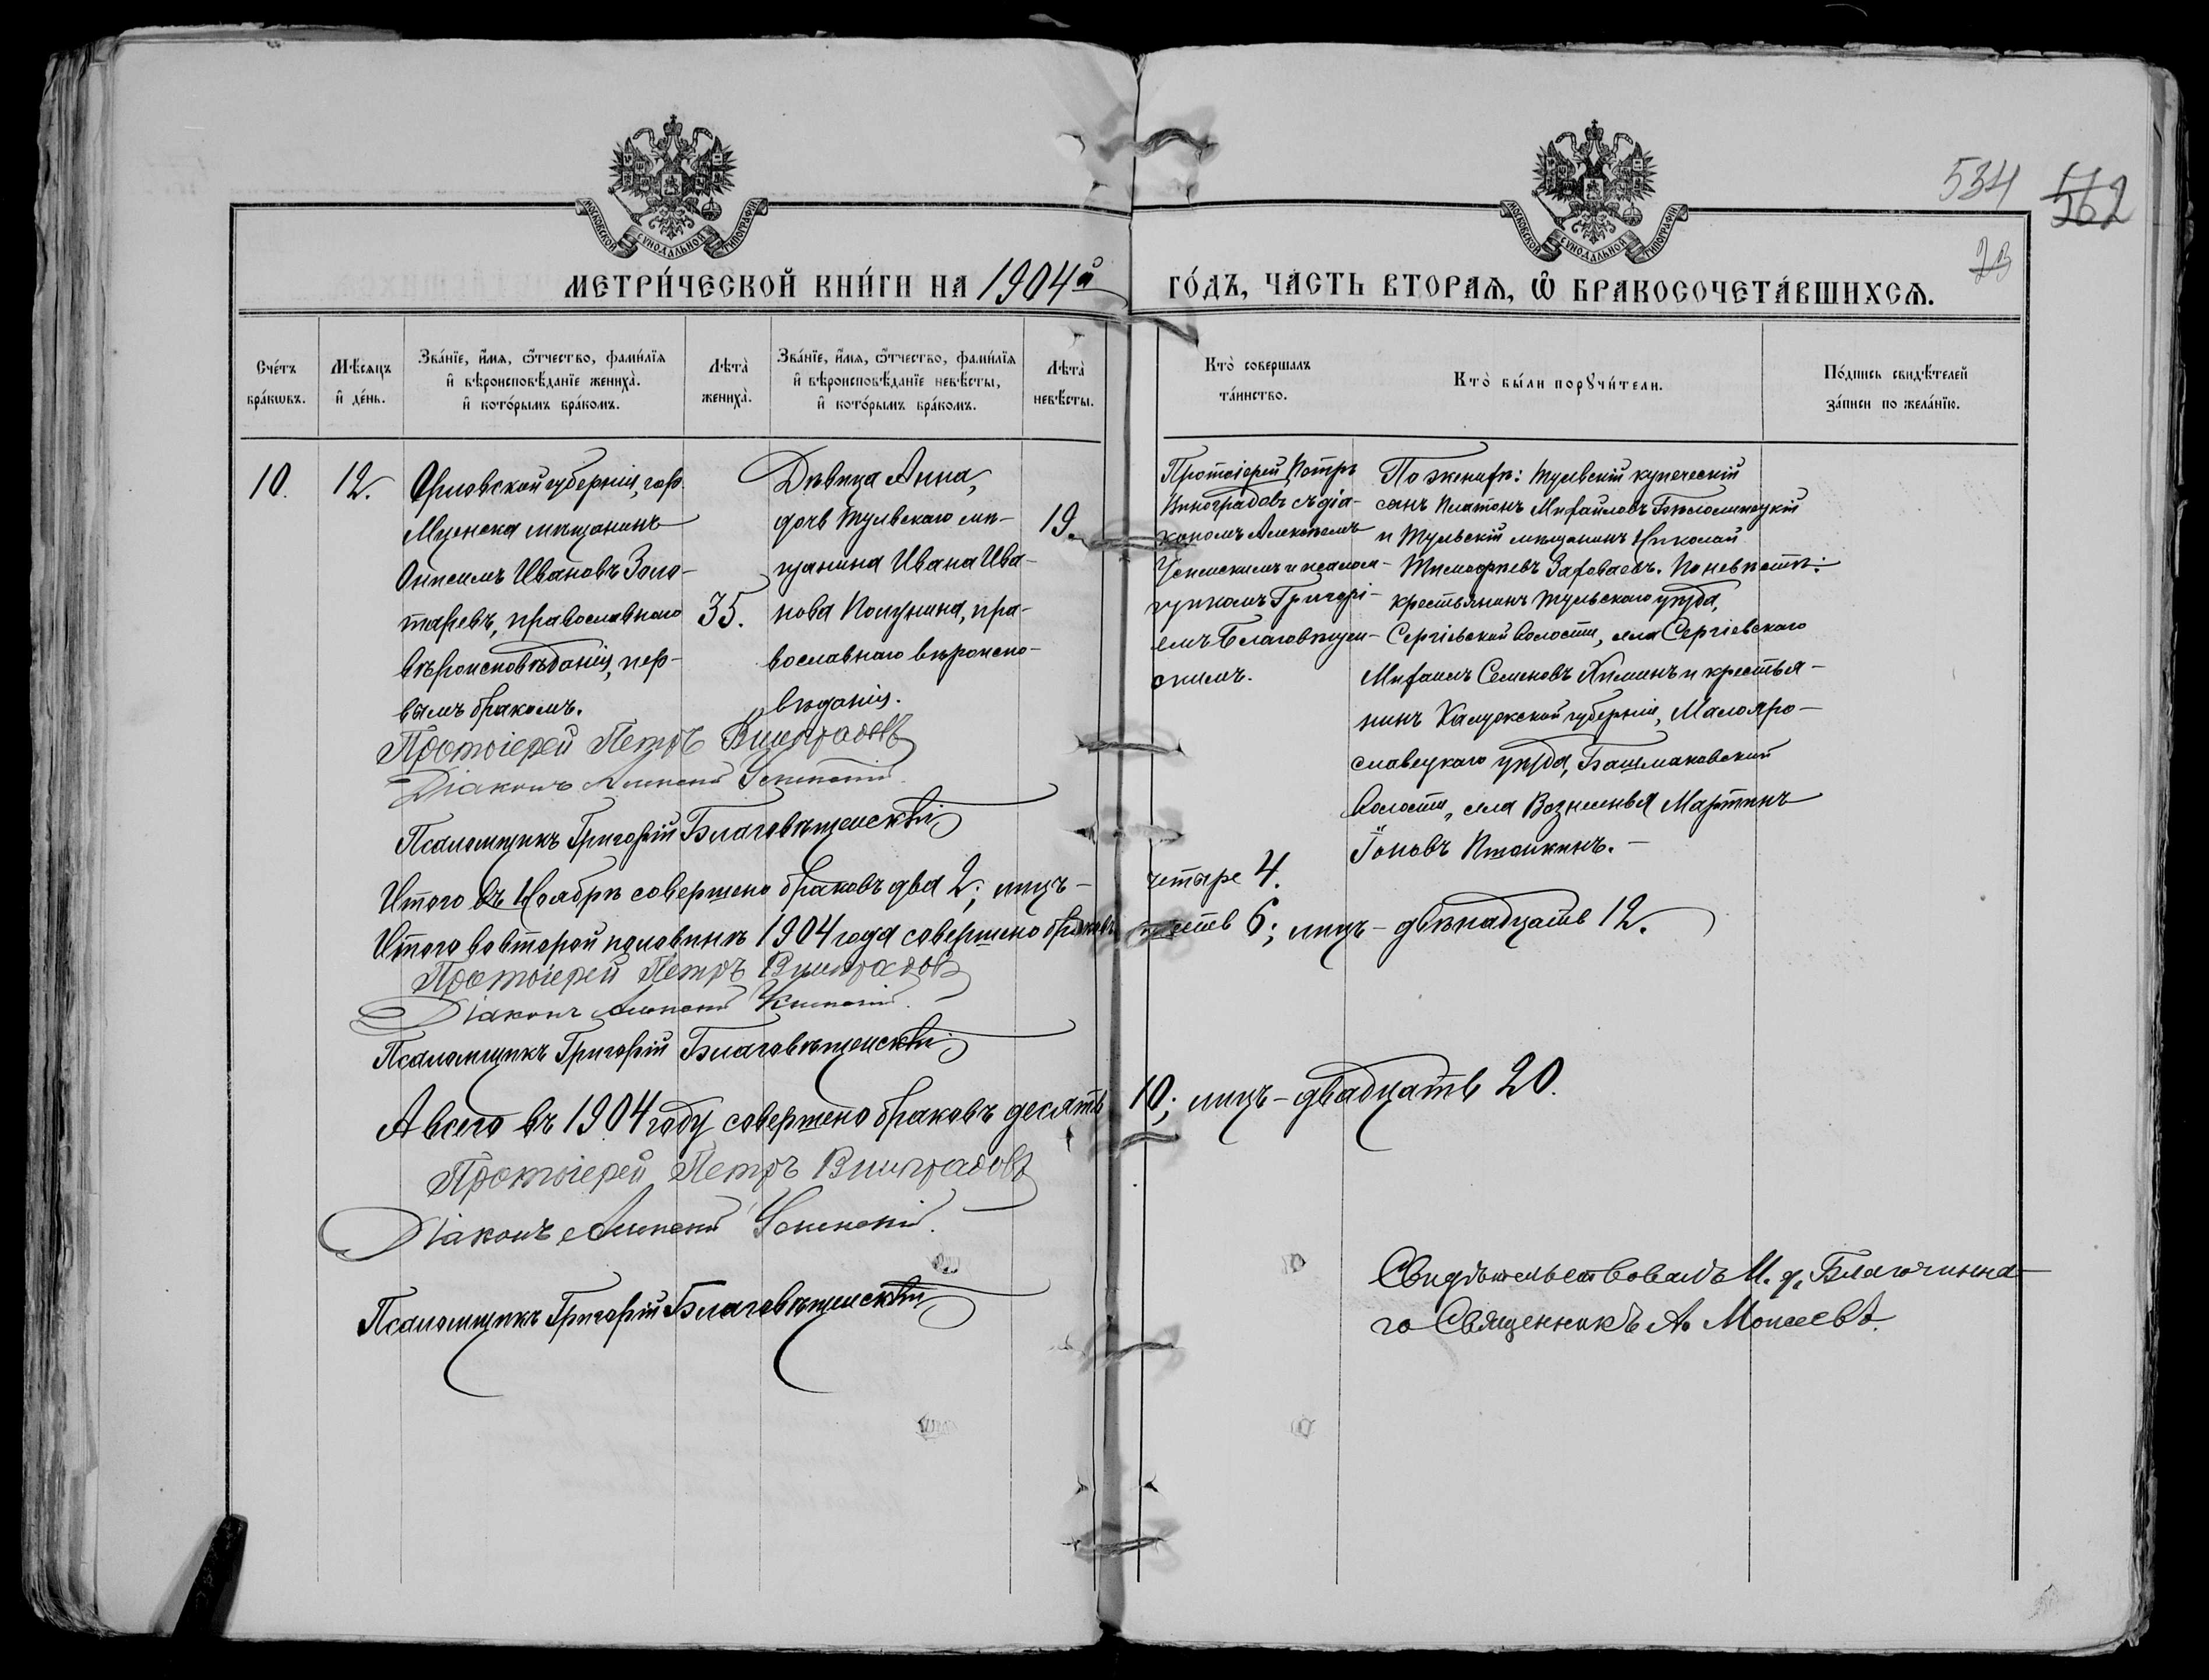 534
562
23
МОСКОВСКОЙ СѴНОДАЛЬНОЙ ТИПОГРАФІИ
МОСКОВСКОЙ СѴНОДАЛЬНОЙ ТИПОГРАФІИ
МЕТРИ́ЧЕСКОЙ КНИ́ГИ НА 1904й
ГО́ДЪ, ЧАСТЬ ВТОРАѦ, Ѿ БРАКОСОЧЕТА́ВШИХСѦ.
Сче́тъ бра́кѡвъ.
Мѣ́сѧцъ и҆ де́нь.
Зва́нїе, и҆́мѧ, ѻ҆́тчество, фами́лїѧ и҆ вѣроисповѣ́данїе жениха̀. и҆ кото́рымъ бра́комъ.
Лѣта̀ жениха̀.
Зва́нїе, и҆́мѧ, ѻ҆́тчество, фами́лїѧ и҆ вѣроисповѣ́данїе невѣ́сты, и҆ кото́рымъ бра́комъ.
Лѣта̀ невѣ́сты.
Кто̀ соверша́лъ та́инство.
Кто̀ бы́ли порꙋчи́тели.
По́дпись свидѣ́телей за́писи по жела́нїю.
10.
12.
Орловской губерніи, гор.
Мценска мѣщанинъ
Онисимъ Ивановъ Золо-
таревъ, православнаго
вѣроисповѣданія, пер-
вымъ бракомъ.
35.
Дѣвица Анна,
дочь тульскаго мѣ-
щанина Ивана Ива-
нова Полунина, пра-
вославнаго вѣроиспо-
вѣданія.
19.
Протоіерей Петръ
Виноградовъ съ діа-
кономъ Алексѣемъ
Успенскимъ и псалом-
щикомъ Григорі-
емъ Благовѣщен-
скимъ.
По женихѣ: тульскій купеческій
сынъ Платонъ Михайловъ Бѣломинецкій
и тульскій мѣщанинъ Николай
Тимофѣевъ Захаваевъ. По невѣстѣ:
крестьянинъ тульскаго уѣзда,
Сергіевской волости, села Сергіевскаго
Михаилъ Семеновъ Химинъ и крестья-
нинъ Калужской губерніи, Малояро-
славецкаго уѣзда, Башмаковской
волости, села Вознесенья Мартинъ
Іоновъ Птичкинъ.
Протоіерей Петръ Виноградовъ
Діаконъ Алексѣй Успенскій
Псаломщикъ Григорій Благовѣщенскій
Итого въ Ноябрѣ совершено браковъ два 2; лицъ - четыре 4.
Итого во второй половинѣ 1904 года совершено браковъ шесть 6; лицъ - двѣнадцать 12.
Протоіерей Петръ Виноградовъ
Діаконъ Алексѣй Успенскій.
Псаломщикъ Григорій Благовѣщенскій
А всего въ 1904 году совершено браковъ десять 10; лицъ - двадцать 20.
Протоіерей Петръ Виноградовъ
Діаконъ Алексѣй Успенскій.
Псаломщикъ Григорій Благовѣщенскій
Свидѣтельствовалъ И. д. Благочинна-
го Священникъ А. Моисеевъ.